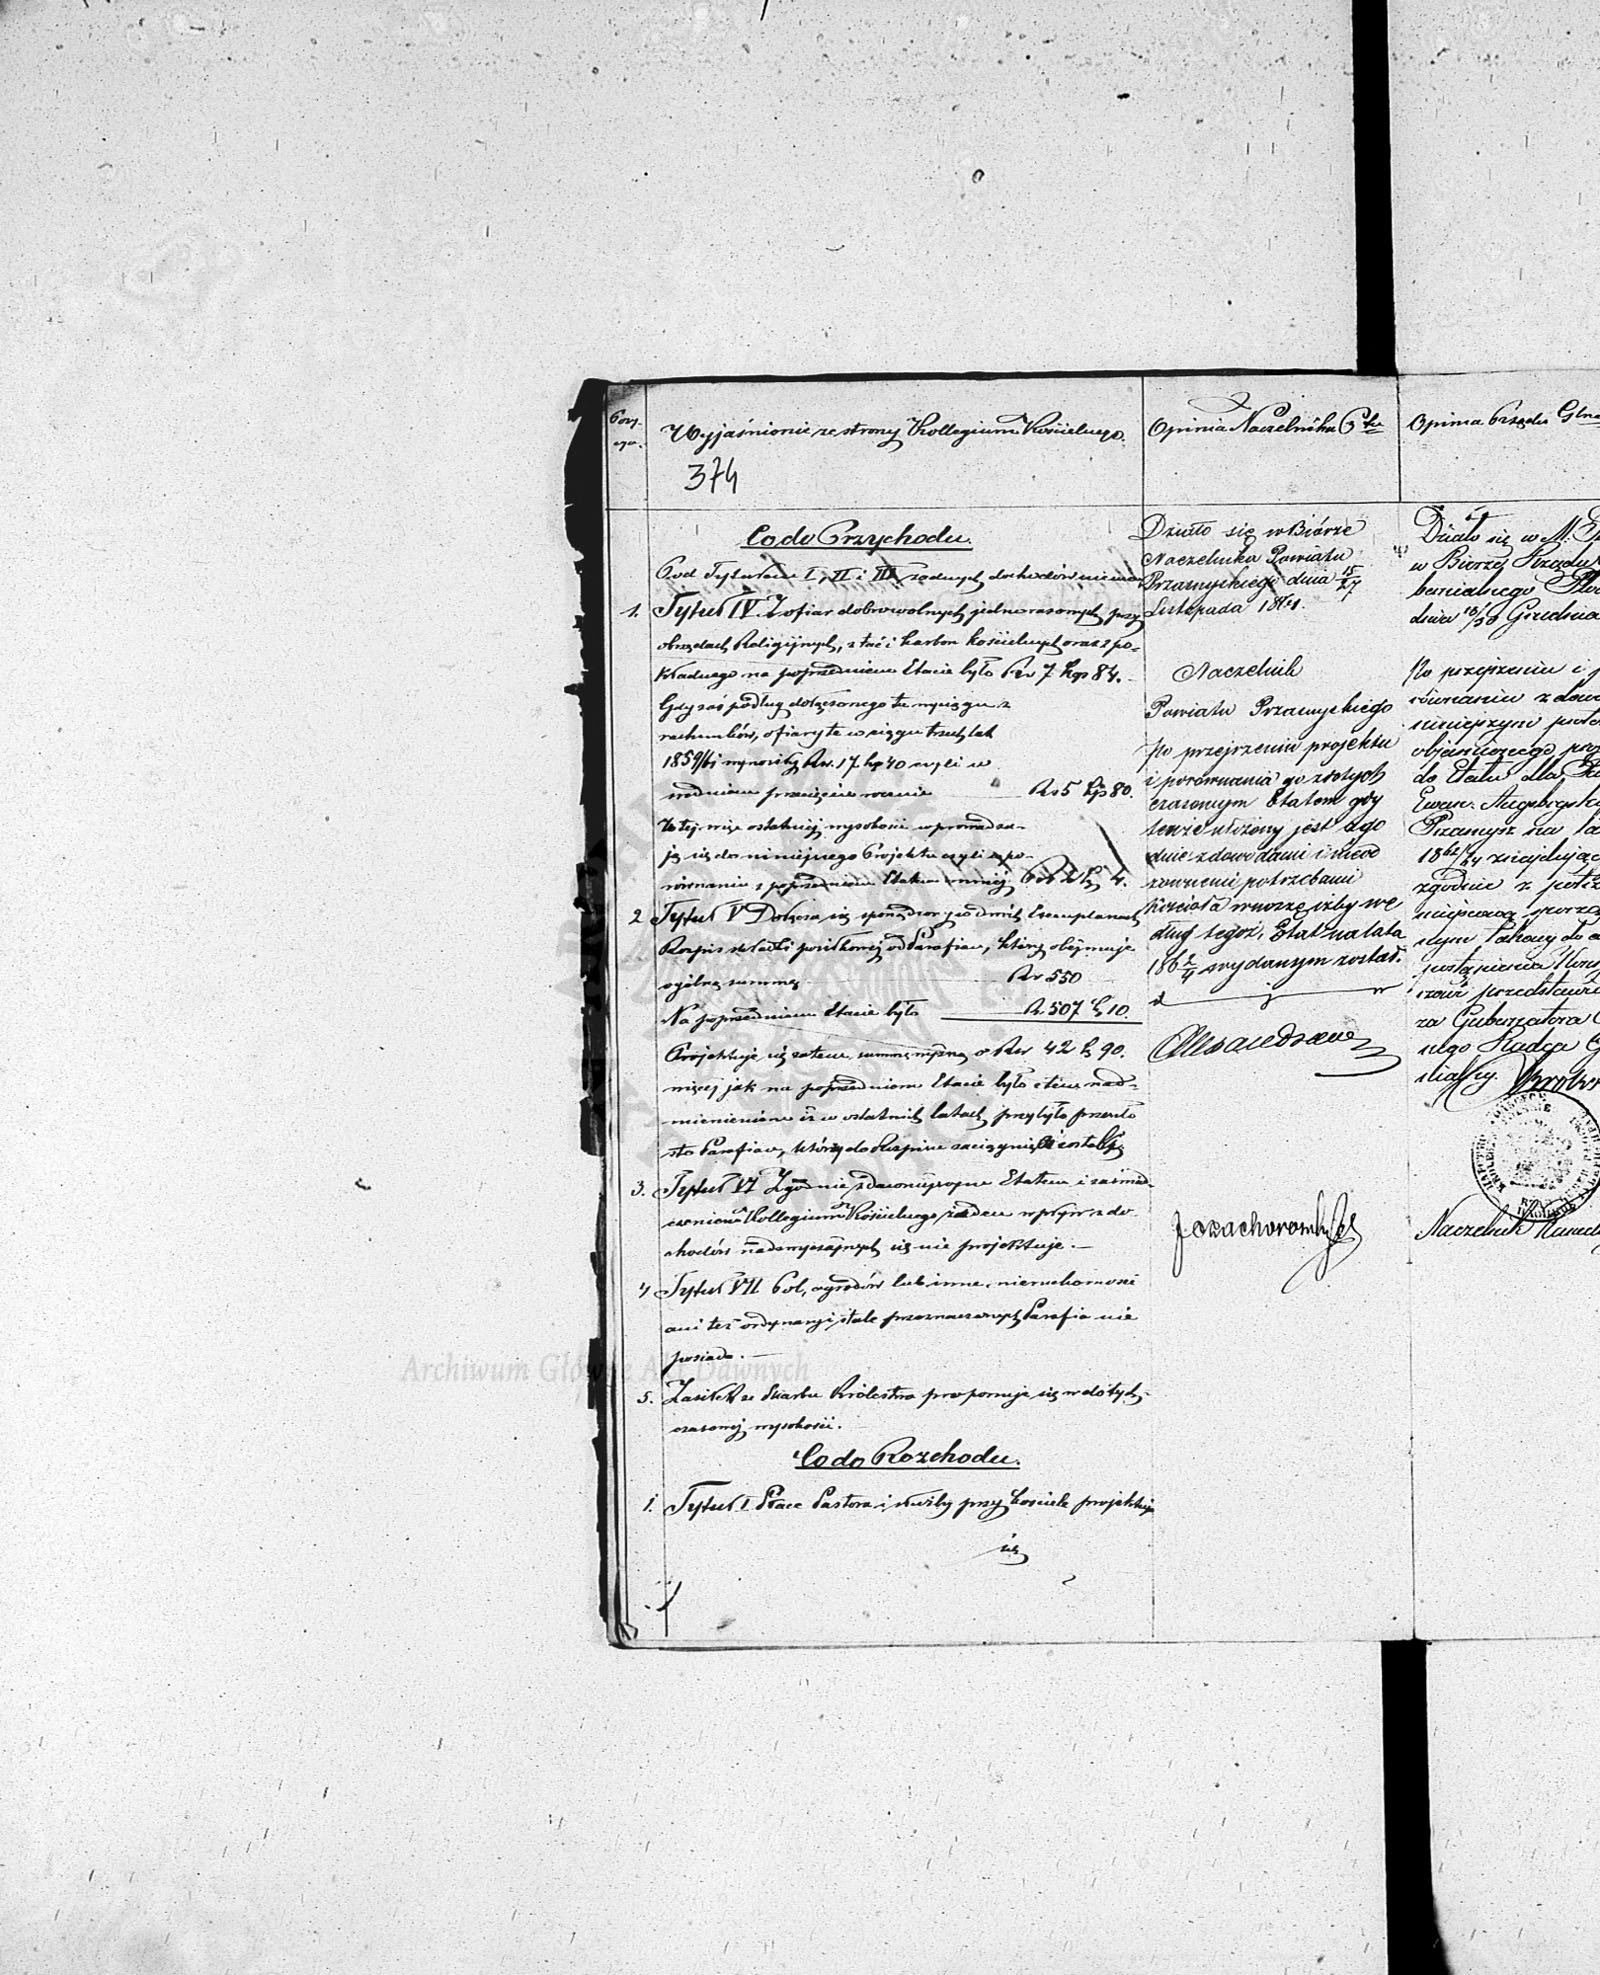 Pozy-
cya.
Wyjaśnienie ze strony Kollegium Kościelnego.
374
Co do Przychodu.
Pod Tytułami I, II i III żadnych dochodów niema
1. Tytuł IV. Z ofiar dobrowolnych jednorazowych przy
obrzędach Religijnych, z tac i karbon kościelnych oraz z po-
kładnego na poprzednim Etacie było Rs 7 kop 84.
Gdy zaś podług dołączonego tu wyciągu z
rachunków, ofiary te w ciągu trzech lat
1859/61 wynosiły Rs. 17 kp 40 czyli w
średnim przecięciu rocznie Rs 5 kp 80.
W tej więc ostatniej wysokości wprowadza-
ją się do niniejszego Projektu czyli w po-
równaniu z poprzednim Etatem mniej Rs 2 k 4.
2 Tytuł V Dołącza się sporządzony w dwóch Exemplarzach
Rozpis składki posiłkowej od Parafian, który obejmuje
ogólną summę Rs 550
Na poprzednim Etacie było R. 507 k 10.
Projektuje się zatem summę wyższą o Rs 42 k 90.
więcej jak na poprzednim Etacie było z tem nad-
mienieniem iż w ostatnich latach przybyło przeszło
sto Parafian, którzy do Rozpisu zaciągnięci zostali
3. Tytuł VI Zgodnie z dawniejszym Etatem i zaświad-
czeniem Kollegium Kościelnego żaden wpływ z do-
chodów nadzwyczajnych się nie projektuje. —
4 Tytuł VII Pol, ogrodów lub inne nieruchomości
ani też ordynaryi stale przeznaczonych Parafia nie
posiada. —
5. Zasiłek ze Skarbu Królestwa proponuje się w dotych-
czasowej wysokości.
Co do Rozchodu.
1. Tytuł I Płace Pastora i służby przy kościele projektuje
się
Opinia Naczelnika Ptu
Działo się w Biórze
Naczelnika Powiatu
Przasnyskiego dnia 15/27
Listopada 1861.
Naczelnik
Powiatu Przasnyskiego
po przejrzeniu projektu
i porównaniu go z dotych
czasowym Etatem gdy
tenże ułożony jest zgo
dnie z dowodami i nieod
zownemi potrzebami
Kościoła wnoszę iżby we
dług tegoż, Etat na lata
186 2/4 wydanym został.
Opinia Rządu Glne
Działo się w M. Pł
w Biórze Rządu
bernialnego Pło
dnia 18/30 Grudnia
Po przejrzeniu i p
równaniu z dow
niniejszym proto
objaśniczego pro
do Etatu dla Pa
Ewan. Augsburgsk
Przasnysz na la
1862/64 znajdując
zgodnie z potrz
miejscową sporzą
za Gubernatora C
nego Radca G
Naczelnik Kancel
Archiwum Główne Akt Dawnych